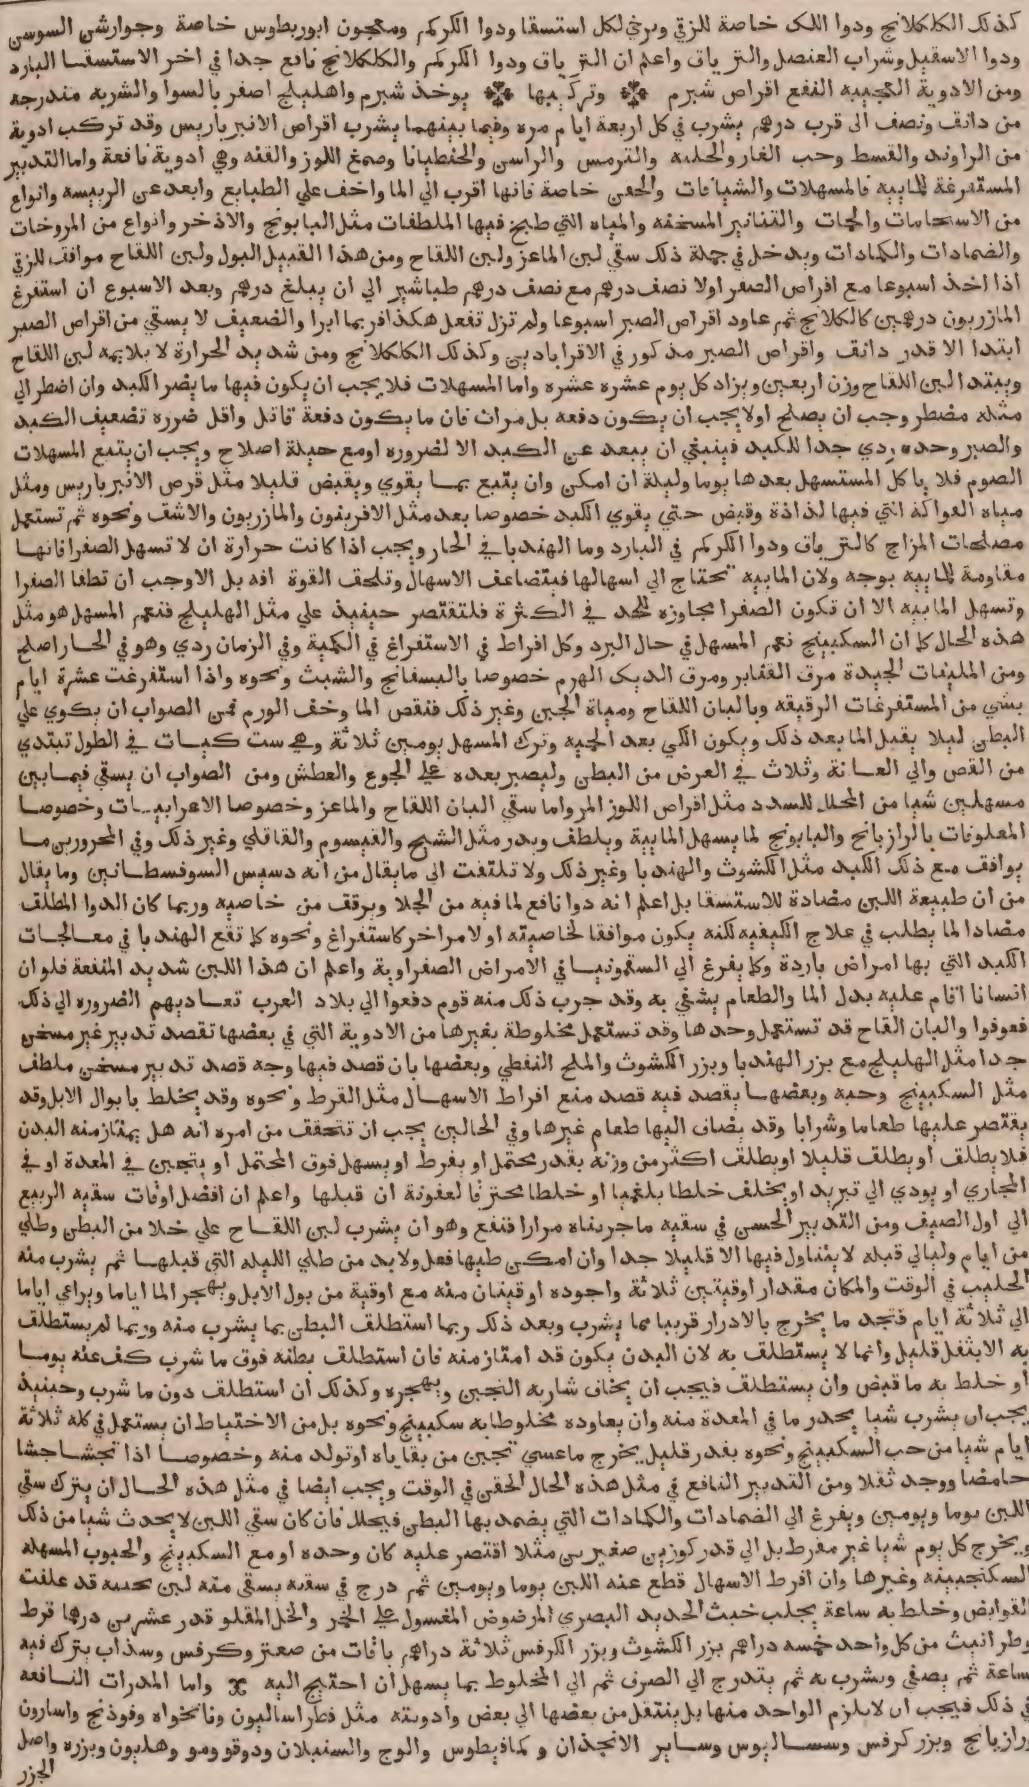 كذلك الكلكلانج ودوا اللك خاصة للزقي ومرخي لكل استسقا ودوا الكركم ومعجون ابوريطوس خاصة وجوارشن السوسن
ودوا الاسقيل وشراب العنصل والترياق واعلم ان الترياق ودوا الكركم والكلكلانج نافع جدا في اخر الاستسقا البارد
ومن الادوية العجيبه النفع اقراص شبرم وتركيبها يوخذ شبرم واهليلج اصفر بالسوا والشربه مندرجه
من دانق ونصف الى قرب درهم يشرب في كل اربعة ايام مره وفيما بينهما يشرب اقراص الانبرباريس وقد تركب ادوية
من الراوند والقسط وحب الغار والحلبه والترمس والراسن والجنطيانا وصمغ اللوز والقنه وهي ادوية نافعة واما التدبير
المستفرغة للماييه فالمسهلات والشيافات والحقن خاصة فانها اقرب الي الما واخف علي الطبايع وابعد عن الرييسه وانواع
من الاستحامات والحمات والتنانير المسخنه والمياه التي طبخ فيها الملطفات مثل البابونج والاذخر وانواع من المروخات
والضمادات والكمادات ويدخل في جملة ذلك سقي لبن الماعز ولبن اللقاح ومن هذا القبيل البول ولبن اللقاح موافق للزقي
اذا اخذ اسبوعا مع اقراص الصفر اولا نصف درهم مع نصف درهم طباشير الي ان يبلغ درهم وبعد الاسبوع ان استفرغ
المازريون درهمين كالكلانج ثم عاود اقراص الصبر اسبوعا ولم تزل تفعل هكذا فربما ابرا والضعيف لا يسقي من اقراص الصبر
ابتدا الا قدر دانق واقراص الصبر مذكور في الاقراباديين وكذلك الكلكلانج ومن شديد الحرارة لا يلايمه لبن اللقاح
ويبتدا لبن اللقاح وزن اربعين ويزاد كل يوم عشره عشره واما المسهلات فلا يجب ان يكون فيها ما يضر الكبد وان اضطر الي
مثله مضطر وجب ان يصلح اولا يجب ان يكون دفعه بل مرات فان ما يكون دفعة قاتل واقل ضرره تضعيف الكبد
والصبر وحده ردي جدا للكبد فينبغي ان يبعد عن الكبد الا لضروره اومع حيلة اصلاح ويجب ان يتبع المسهلات
الصوم فلا ياكل المستسهل بعدها يوما وليلة ان امكن وان يتبع بما يقوي ويقبض قليلا مثل قرص الانبرباريس ومثل
مياه الفواكه التي فيها لذاذة وقبض حتي يقوي الكبد خصوصا بعد مثل الافريبون والمازريون والاشق ونحوه ثم تستعمل
مصلحات المزاج كالترياق ودوا الكركم في البارد وما الهندبا في الحار ويجب اذا كانت حرارة ان لا تسهل الصفرا فانها
مقاومة للماييه بوجه ولان الماييه تحتاج الي اسهالها فيتضاعف الاسهال وتلحق القوة افه بل الاوجب ان تطفا الصفرا
وتسهل الماييه الا ان تكون الصفرا مجاوزه للحد في الكثرة فلتقتصر حينيذ علي مثل الهليلج فنعم المسهل هو مثل
هذه الحال كما ان السكبينج نعم المسهل في حال البرد وكل افراط في الاستفراغ في الكمية وفي الزمان ردي وهو في الحار اصلح
ومن الملينات الجيدة مرق القنابر ومرق الديك الهرم خصوصا بالبسفانج والشبث ونحوه واذا استفرغت عشرة ايام
بشي من المستفرغات الرقيقه وبالبان اللقاح ومياة الجبن وغير ذلك فنقص الما وخف الورم فمن الصواب ان يكوي علي
البطن ليلا يقبل الما بعد ذلك ويكون الكي بعد الحميه وترك المسهل يومين ثلاثة وهي ست كيات في الطول تبتدي
من القص والي العانة وثلاث في العرض من البطن وليصبر بعده علي الجوع والعطش ومن الصواب ان يسقي فيما بين
مسهلين شيا من المحلل للسدد مثل اقراص اللوز المر واما سقي البان اللقاح والماعز وخصوصا الاعرابيات وخصوصا
المعلوفات بالرازيانج والبابونج لما يسهل الماييه ويلطف ويدر مثل الشيح والقيسوم والقاقلي وغير ذلك وفي المحرورين ما
يوافق مع ذلك الكبد مثل الكشوث والهندبا وغير ذلك ولا تلتفت الى ما يقال من انه دسيس السوفسطانين وما يقال
من ان طبيعة اللبن مضادة للاستسقا بل اعلم انه دوا نافع لما فيه من الجلا وبرقق من خاصيه وربما كان الدوا المطلق
مضادا لما يطلب في علاج الكيفيه لكنه يكون موافقا لخاصيته او لامر اخر كاستفراغ ونحوه كما تقع الهندبا في معالجات
الكبد التي بها امراض باردة وكما يفرغ الي السقمونيا في الامراض الصفراوية واعلم ان هذا اللبن شديد المنفعة فلو ان
انسانا اقام عليه بدل الما والطعام يشفي به وقد جرب ذلك منه قوم دفعوا الي بلاد العرب تعاديهم الضروره الي ذلك
فعوفوا والبان القاح قد تستعمل وحدها وقد تستعمل مخلوطة بغيرها من الادوية التي في بعضها تقصد تدبير غير مسخن
جدا مثل الهليلج مع بزر الهندبا وبزر الكشوث والملح النفطي وبعضها بان قصد فيها وجه قصد تدبير مسخن ملطف
مثل السكبينج وحبه وبعضها يقصد فيه قصد منع افراط الاسهال مثل القرط ونحوه وقد يخلط بابوال الابل وقد
يقتصر عليها طعاما وشرابا وقد يضاف اليها طعام غيرها وفي الحالين يجب ان تتحقق من امره انه هل يمتاز منه البدن
فلا يطلق او يطلق قليلا اويطلق اكثر من وزنه بقدر يحتمل او يفرط او يسهل فوق المحتمل او يتجبن في المعدة او في
المجاري او يودي الي تبريد او يخلف خلطا بلغميا او خلطا محترقا لعفونة ان قبلها واعلم ان افضل اوقات سقيه الربيع
الي اول الصيف ومن التدبير الحسن في سقيه ما جربناه مرارا فنفع وهو ان يشرب لبن اللقاح علي خلا من البطن وطلي
من ايام وليالي قبله لا يتناول فيها الا قليلا جدا وان امكن طيها فعل ولا بد من طلي الليله التي قبلها ثم يشرب منه
الحليب في الوقت والمكان مقدار اوقيتين ثلاثة واجوده اوقيتان منه مع اوقية من بول الابل ويهجر الما اياما ويراعي اياما
الي ثلاثة ايام فتجد ما يخرج بالادرار قريبا مما يشرب وبعد ذلك ربما استطلق البطن بما يشرب منه وربما لم يستطلق
به الابثفل قليل وانما لا يستطلق به لان البدن يكون قد امتاز منه فان استطلق بطنه فوق ما شرب كف عنه يوما
او خلط به ما قبض وان يستطلق فيجب ان يخاف شاربه التجبن ويهجره وكذلك ان استطلق دون ما شرب وحينيذ
يجب ان يشرب شيا يحدر ما في المعدة منه وان يعاوده مخلوطا به سكبينج ونحوه بل من الاحتياط ان يستعمل في كله ثلاثة
ايام شيا من حب السكبينج ونحوه بقدر قليل يخرج ما عسي تجبن من بقاياه او تولد منه وخصوصا اذا تجشا جشا
حامضا ووجد ثقلا ومن التدبير النافع في مثل هذه الحال الحقن في الوقت ويجب ايضا في مثل هذه الحال ان يترك سقي
اللبن يوما ويومين ويفرغ الي الضمادات والكمادات التي يضمد بها البطن فيحلل فان كان سقي اللبن لا يحدث شيا من ذلك
ويخرج كل يوم شيا غير مفرط بل الي قدر كوزين صغيرين مثلا اقتصر عليه كان وحده او مع السكبينج والحبوب المسهله
السكنجبينه وغيرها وان افرط الاسهال قطع عنه اللبن يوما ويومين ثم درج في سقيه يسقي منه لبن نجيبه قد علفت
القوابض وخلط به ساعة يحلب خبث الحديد البصري المرضوض المغسول علي الخمر والخل المقلو قدر عشرين درهما قرط
وطراثيث من كل واحد خمسه دراهم بزر الكشوث وبزر الكرفس ثلاثة دراهم باقات من صعتر وكرفس وسذاب يترك فيه
ساعة ثم يصفي ويشرب به ثم يتدرج الي الصرف ثم الي المخلوط بما يسهل ان احتيج اليه واما المدرات النافعه
في ذلك فيجب ان لا يلزم الواحد منها بل ينتقل من بعضها الي بعض وادويته مثل فطراساليون ونانخواه وفوذنج واسارون
ورازيانج وبزر كرفس وسساليوس وساير الانجذان وكمافيطوس والوج والسنبلان ودوقو ومو وهليون وبزره واصل
الجزر